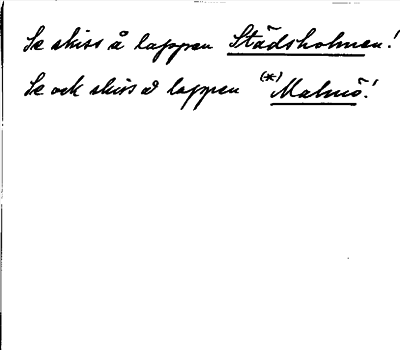 Se skiss å lappen Städsholmen!
Se ock skiss å lappen (*) Malmö!